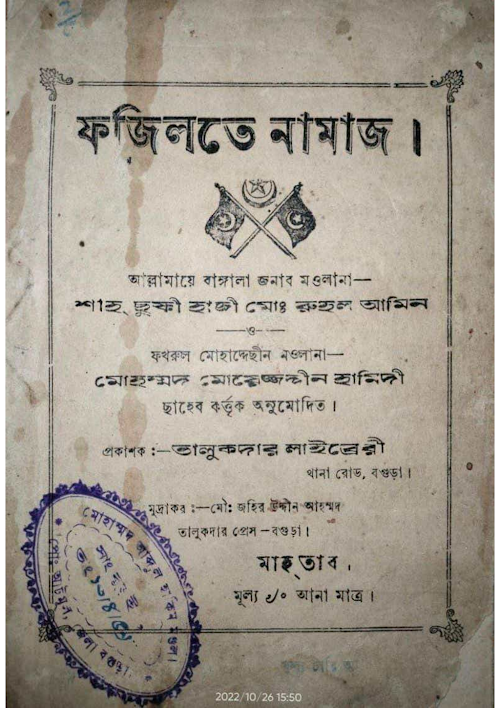 ফজিলতে নামাজ ।
আল্লামায়ে বাঙ্গালা জনাব মওলানা—
শাহ্ ছুফী হাজী মোঃ রুহল আমিন
—ও—
ফখরুল মোহাদ্দেছীন মওলানা—
মোহাম্মদ মোয়েজ্জদ্দীন হামিদী
ছাহেব কর্ত্তৃক অনুমোদিত ।
প্রকাশক :—তালুকদার লাইব্রেরী
থানা রোড, বগুড়া ।
মুদ্রাকর :—মৌঃ জহির উদ্দীন আহম্মদ
তালুকদার প্রেস –বগুড়া ।
মাহ্‌তাব ।
মূল্য ৵০ আনা মাত্র ।
মোহাম্মদ আব্দুল হাকিম মণ্ডল।
জেলা বগুড়া
2022/10/26 15:50